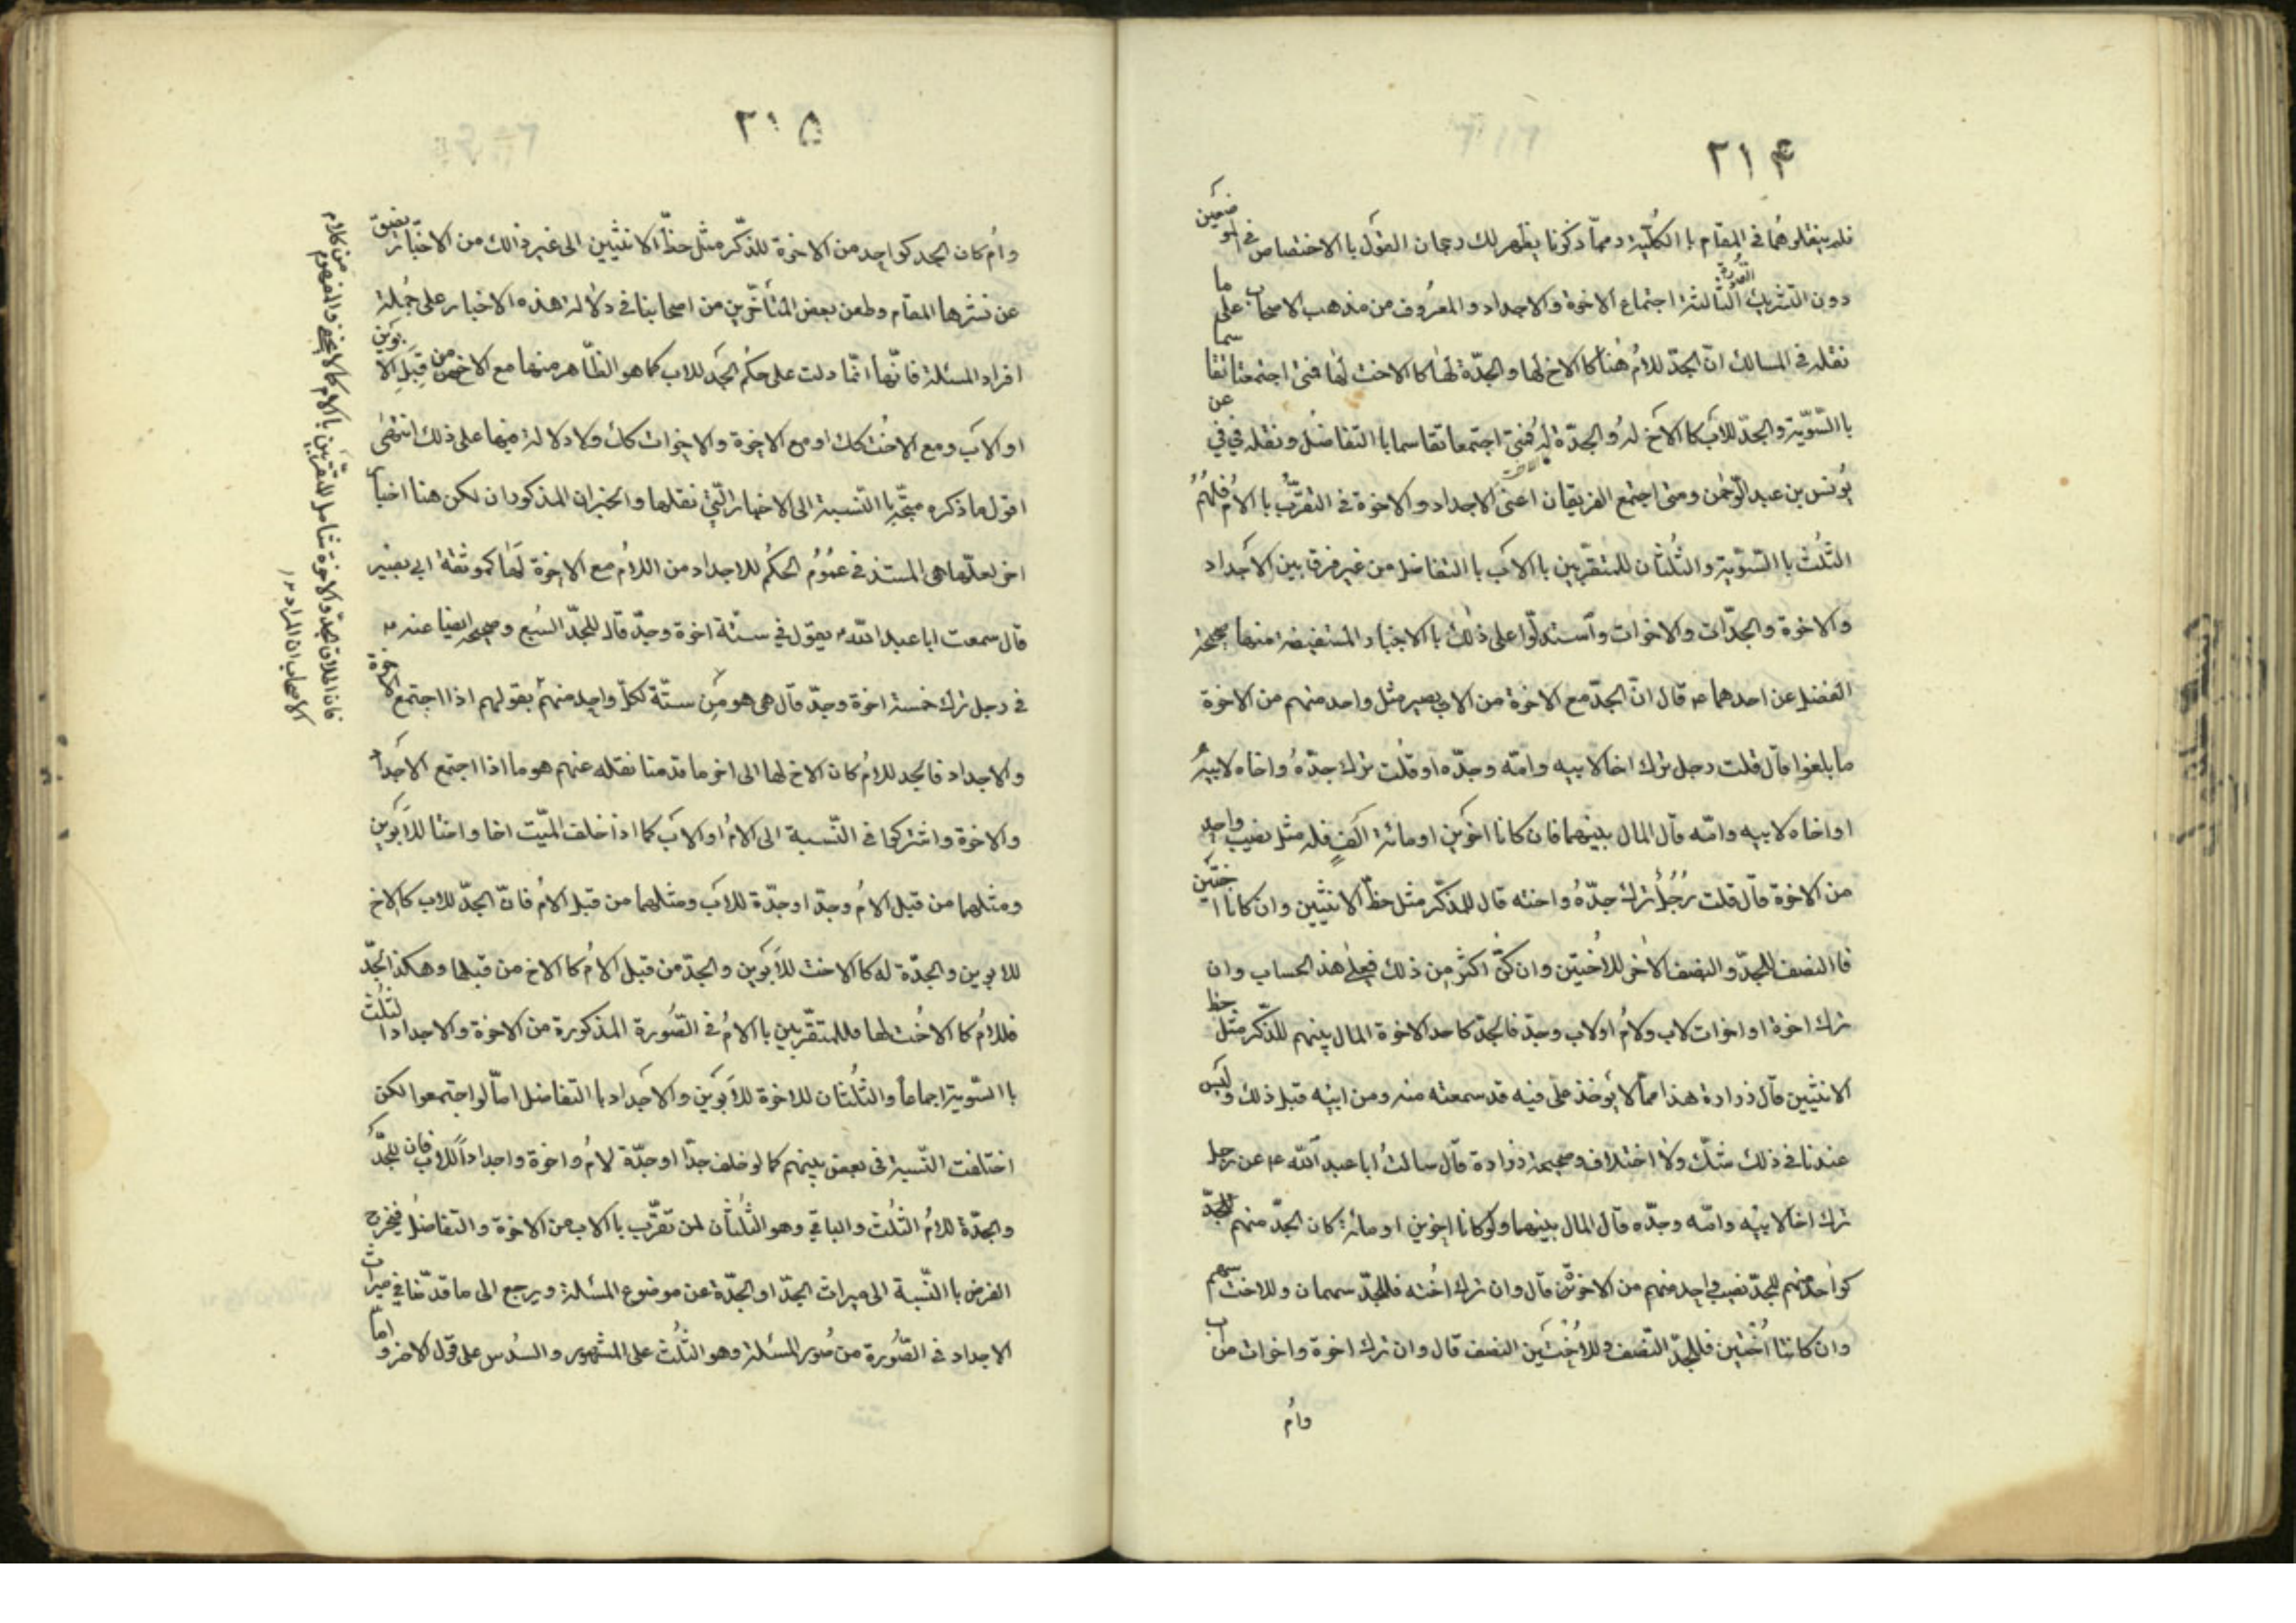 ٢١۴
فلم ينقلوهما في المقام با الكلّية ومما ذكرنا يظهر لك رجحان القول با الاختصاص في الموضعين
دون التشريك الثالثة القرية اجتماع الاخوة والاجداد والمعروف من مذهب الاصحاب على ما
نقله في المسالك انّ الجدّ للامّ هنا كا الاخ لها والجدّة لها كا الاخت لها فمتى اجتمعتا تقاسما
با السّويّة والجدّ للاب كا الاخ له والجدّة له فمتى اجتمعا تقاسما با التفاضل ونقله في في عن
يونس بن عبد الرّحمن ومتى اجتمع الفريقان اعنى الاجداد والاخوة في التقرّب با الامّ فلهم
الثّلث با السّويّة والثّلثان للمتقرّبين با الاب با التفاضل من غير فرق بين الاجداد
والاخوة والجدّات والاخوات واستدلّوا على ذلك با الاخبار المستفيضة منها صحيحة
الفضل عن احدهما ع قال انّ الجدّ مع الاخوة من الاب يصير مثل واحد منهم من الاخوة
ما بلغوا قال قلت رجل ترك اخا لابيه وامّه وجدّه او قلت ترك جدّه واخاه لابيه
او اخاه لابيه وامّه قال المال بينهما فان كانا اخوين او مائة الف فله مثل نصيب واحد
من الاخوة قال قلت رجل ترك جدّه واخته قال للذّكر مثل حظّ الانثيين وان كانتا اختين
فا النصف للجدّ والنصف الاخر للاختين وان كنّ اكثر من ذلك فعلى هذ الحساب وان
ترك اخوة او اخوات لاب ولامّ او لاب وجدّ فالجدّ كاحد الاخوة المال بينهم للذّكر مثل حظ
الانثيين قال زرارة هذا ممّا لا يؤخذ علىّ فيه قد سمعته منه ومن ابيه قبل ذلك وليس
عندنا في ذلك شكّ ولا اختلاف وصحيحة زرارة قال سالت ابا عبد الله ع عن رجل
ترك اخا لابيه وامّه وجدّه قال المال بينهما ولو كانا اخوين او مائة كان الجدّ منهم للجدّ
كواحد منهم للجدّ نصيب واحد منهم من الاخوة قال وان ترك اخته فللجدّ سهمان وللاخت سهم
وان كانتا اختين فللجدّ النّصف وللاختين النصف قال وان ترك اخوة واخوات من اب
وام
٢١۵
وامّ كان الجد كواحد من الاخوة للذّكر مثل حظّ الانثيين الى غير ذالك من الاخبار يضيق
عن نشرها المقام وطعن بعض المتأخّرين من اصحابنا في دلالة هذه الاخبار على جملة
افراد المسئلة فانّها انّما دلت على حكم الجد للاب كما هو الظّاهر منها مع الاخ من قبل الابوين
او الاب ومع الاخت كك او مع الاخوة والاخوات كك ولا دلالة فيها على ذلك انتهى
اقول ما ذكره متّجه با النّسبة الى الاخبار الّتي نقلها والخبران المذكوران لكن هنا اخبار
اخر لعلّها هي المستند في عموم الحكم للاجداد من اللامّ مع الاخوة لها كموثقة ابي بصير
قال سمعت ابا عبد الله ع يقول في ستّة اخوة وجدّ قال للجدّ السّبع وصحيحه ايضا عنه ع
في رجل ترك خمسة اخوة وجدّ قال هي هو من ستّة لكلّ واحد منهم بقولهم اذا اجتمع الاخوة
والاجداد فالجد للامّ كان الاخ لها الى اخر ما قدمنا نقله عنهم هو ما اذا اجتمع الاجداد
والاخوة واشتركوا في النّسبة الى الامّ او الاب كما اذا خلف الميّت اخا واختا للابوين
ومثلهما من قبل الامّ وجدّا وجدّة للاب ومثلهما من قبل الامّ فانّ الجدّ للاب كالاخ
للابوين والجدّة له كا الاخت للابوين والجدّ من قبل الامّ كا الاخ من قبلها وهكذ الجدّ
فللامّ كا الاخت لها فللمتقرّبين با الامّ في الصّورة المذكورة من الاخوة والاجداد الثلث
با السّوية اجماعا والثلثان للاخوة للابوين والاجداد با التفاضل امّا لو اجتمعوا لكن
اختلفت النّسبة في بعض بينهم كما لو خلف جدّا او جدّة لامّ واخوة واجداداً للاب فان للجدّ
والجدّة للامّ الثّلث والباقي وهو الثّلثان لمن تقرّب با الاب من الاخوة والتفاضل فيخرج
الفرض با النّسبة الى ميراث الجدّ او الجدّة عن موضوع المسئلة ويرجع الى ما قدّمنا في ميراث
الاجداد في الصّورة من صور المسئلة وهو الثّلث على المشهور والسّدس على قول الاخر وامّا
من كلام
فان اطلاق الجدّ والاخوة شامل للمتقرّبين با الام كما لا يخفى والمفهوم
الاصحاب ان المراد